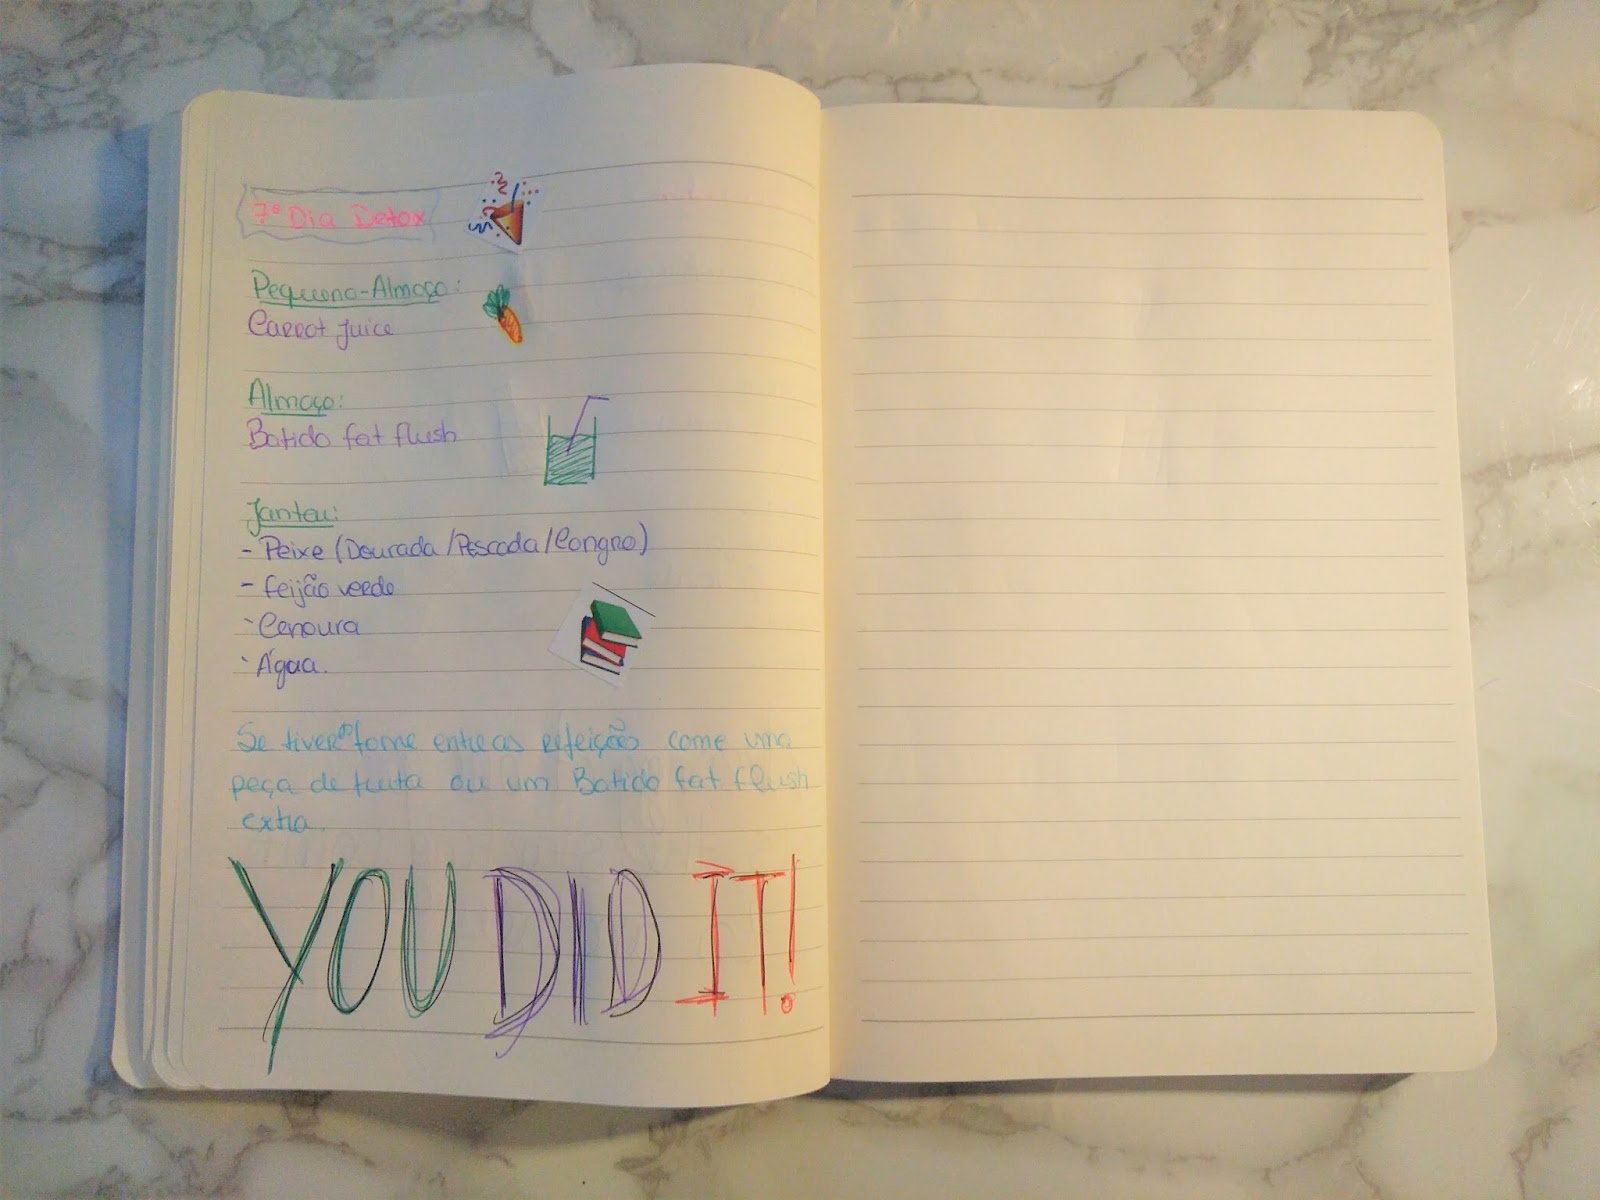 7º Dia Detox
Pequeno-Almoço:
Carrot Juice
Almoço:
Batido fat flush
Jantar:
- Peixe (Dourada/Pescada/Congro)
- feijão verde
- Cenoura
- Água.
Se tiveres fome entre as refeições come uma
peça de fruta ou um Batido fat flush
extra.
YOU DID IT!